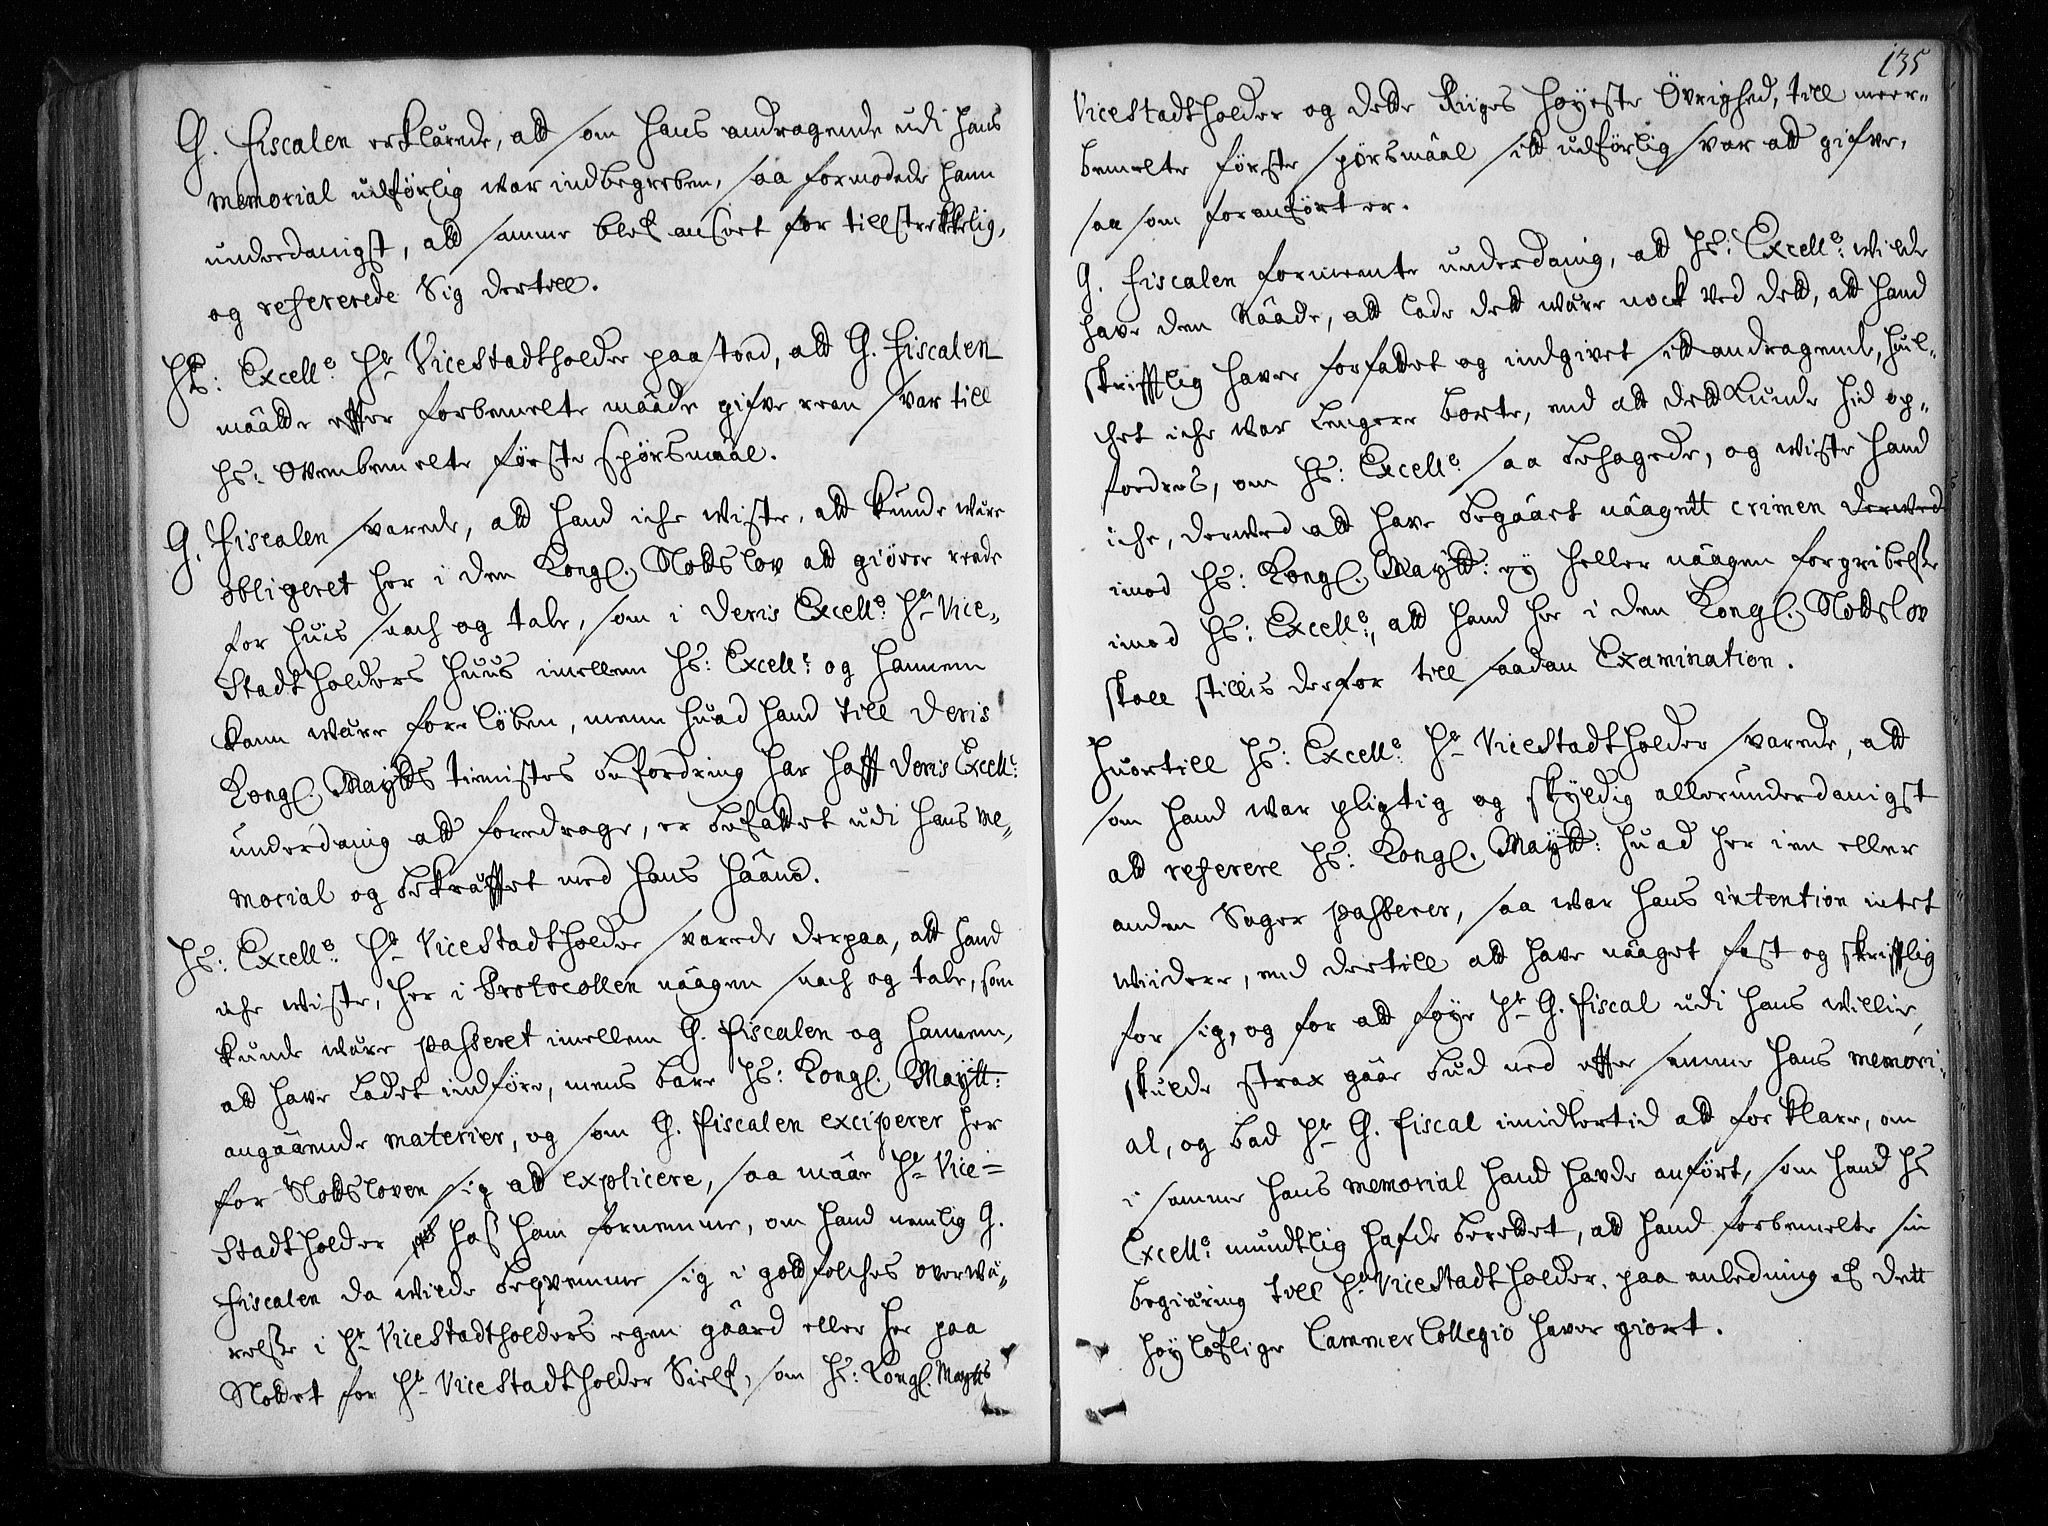 G. Fiscalen erklærede, att som hans andragende udi hans
memorial udførlig war indbegreben, saa formodede hann
underdanigst, att samme blef anseet for tillstrekkelig,
og refererede Sig dertill.
Hs: Excell:e Hr ViceStadtholder paastoed, att G. Fiscalen
måtte effter forbemelte måde gifve reen svar till
hs: ovenbemelte første spörsmåal.
G. Fiscalen svarede, att hand iche wiste, att kunde wære
obligeret her i den Kongl. Slotts lov att giöre rede
for huis snach og tale, som i deris Excell:e Hr Vice-
Stadtholders huus imellem Hs: Excell:e og hannem
kann wære foreløben, menn huad hand till deris
Kongl. Maytts tienistes befordring har hafft deris Excell:
underdanig att foredrage, er befattet udi hans me-
morial og bekræfftet med hans håånd.
Hs: Excell:e Hr ViceStadtholder svarede derpaa, att hand
iche wiste, her i Protocollen någen snach og tale, som
kunde wære passeret imellem G. fiscalen og hannem,
att have ladet indföre, mens bare Hs: Kongl. Maytt:
angåaende materier, og som G. fiscalen exciperer her
for Slottsloven sig att explicere, saa måae Hr Vice-
Stadtholder hoß ham fornemme, om hand nemlig G.
fiscalen da wilde beqvemme sig i gott folches overwæ-
relse i Hr ViceStadtholders egen gåard eller her paa
Slottet for Hr ViceStadtholder Sielf, som Hs: Kongl. Maytts
135
ViceStadtholder og dette Riiges høyeste Övrighed, till meer-
bemelte første spörsmåal sitt udförlig svar att gifve,
saa som foranfört er.
G. Fiscalen formeente underdanig, att Hs: Excell:e wilde
have den Nåade, att lade dett wære nock ved dett, att hand
skrifftlig haver forfattet og indgivet sitt andragende, huil-
chet iche war lengere borte, end att dett kunde hid op-
fordres, om Hs: Excell:e saa behagede, og wiste hand
iche, derved att have begåaet nåagett crimen derved
imod Hs: Kongl. Maytt: ey heller nåagen forgribelse
imod Hs: Excell:e, att hand her i den Kongl. Slottslov
skall stillis derfor till saadan Examination.
Huortill Hs: Excell:e Hr ViceStadtholder svarede, att
som hand war pligtig og skyldig allerunderdanigst
att referere Hs: Kongl. Maytt: huad her i en eller
anden Sager passerer, saa war hans intention intet
widere, end dertill att have nåaget fast og skrifftlig
for sig, og for att føye Hr G. fiscal udi hans willie,
skulde strax gåae bud ned effter samme hans memori-
al, og bad Hr G. fiscal imidlertid att forklare, om
i samme hans memorial hand havde anført, som hand Hs
Excell:e mundtlig hafde berettet, att hand forbemelte sin
begiæring till Hr ViceStadtholder, paa anledning af dett
höyloflige Cammer Collegio haver giort.